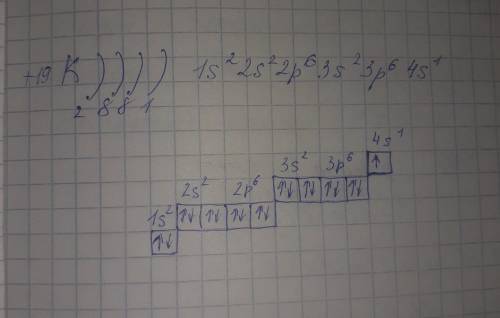 +19 K ) ) ) ) 1s² 2s² 2p⁶ 3s² 3p⁶ 4s¹
2 8 8 1
4s¹
↑
3s² 3p⁶
↑↓ ↑↓ ↑↓ ↑↓
2s² 2p⁶
↑↓ ↑↓ ↑↓ ↑↓
1s²
↑↓